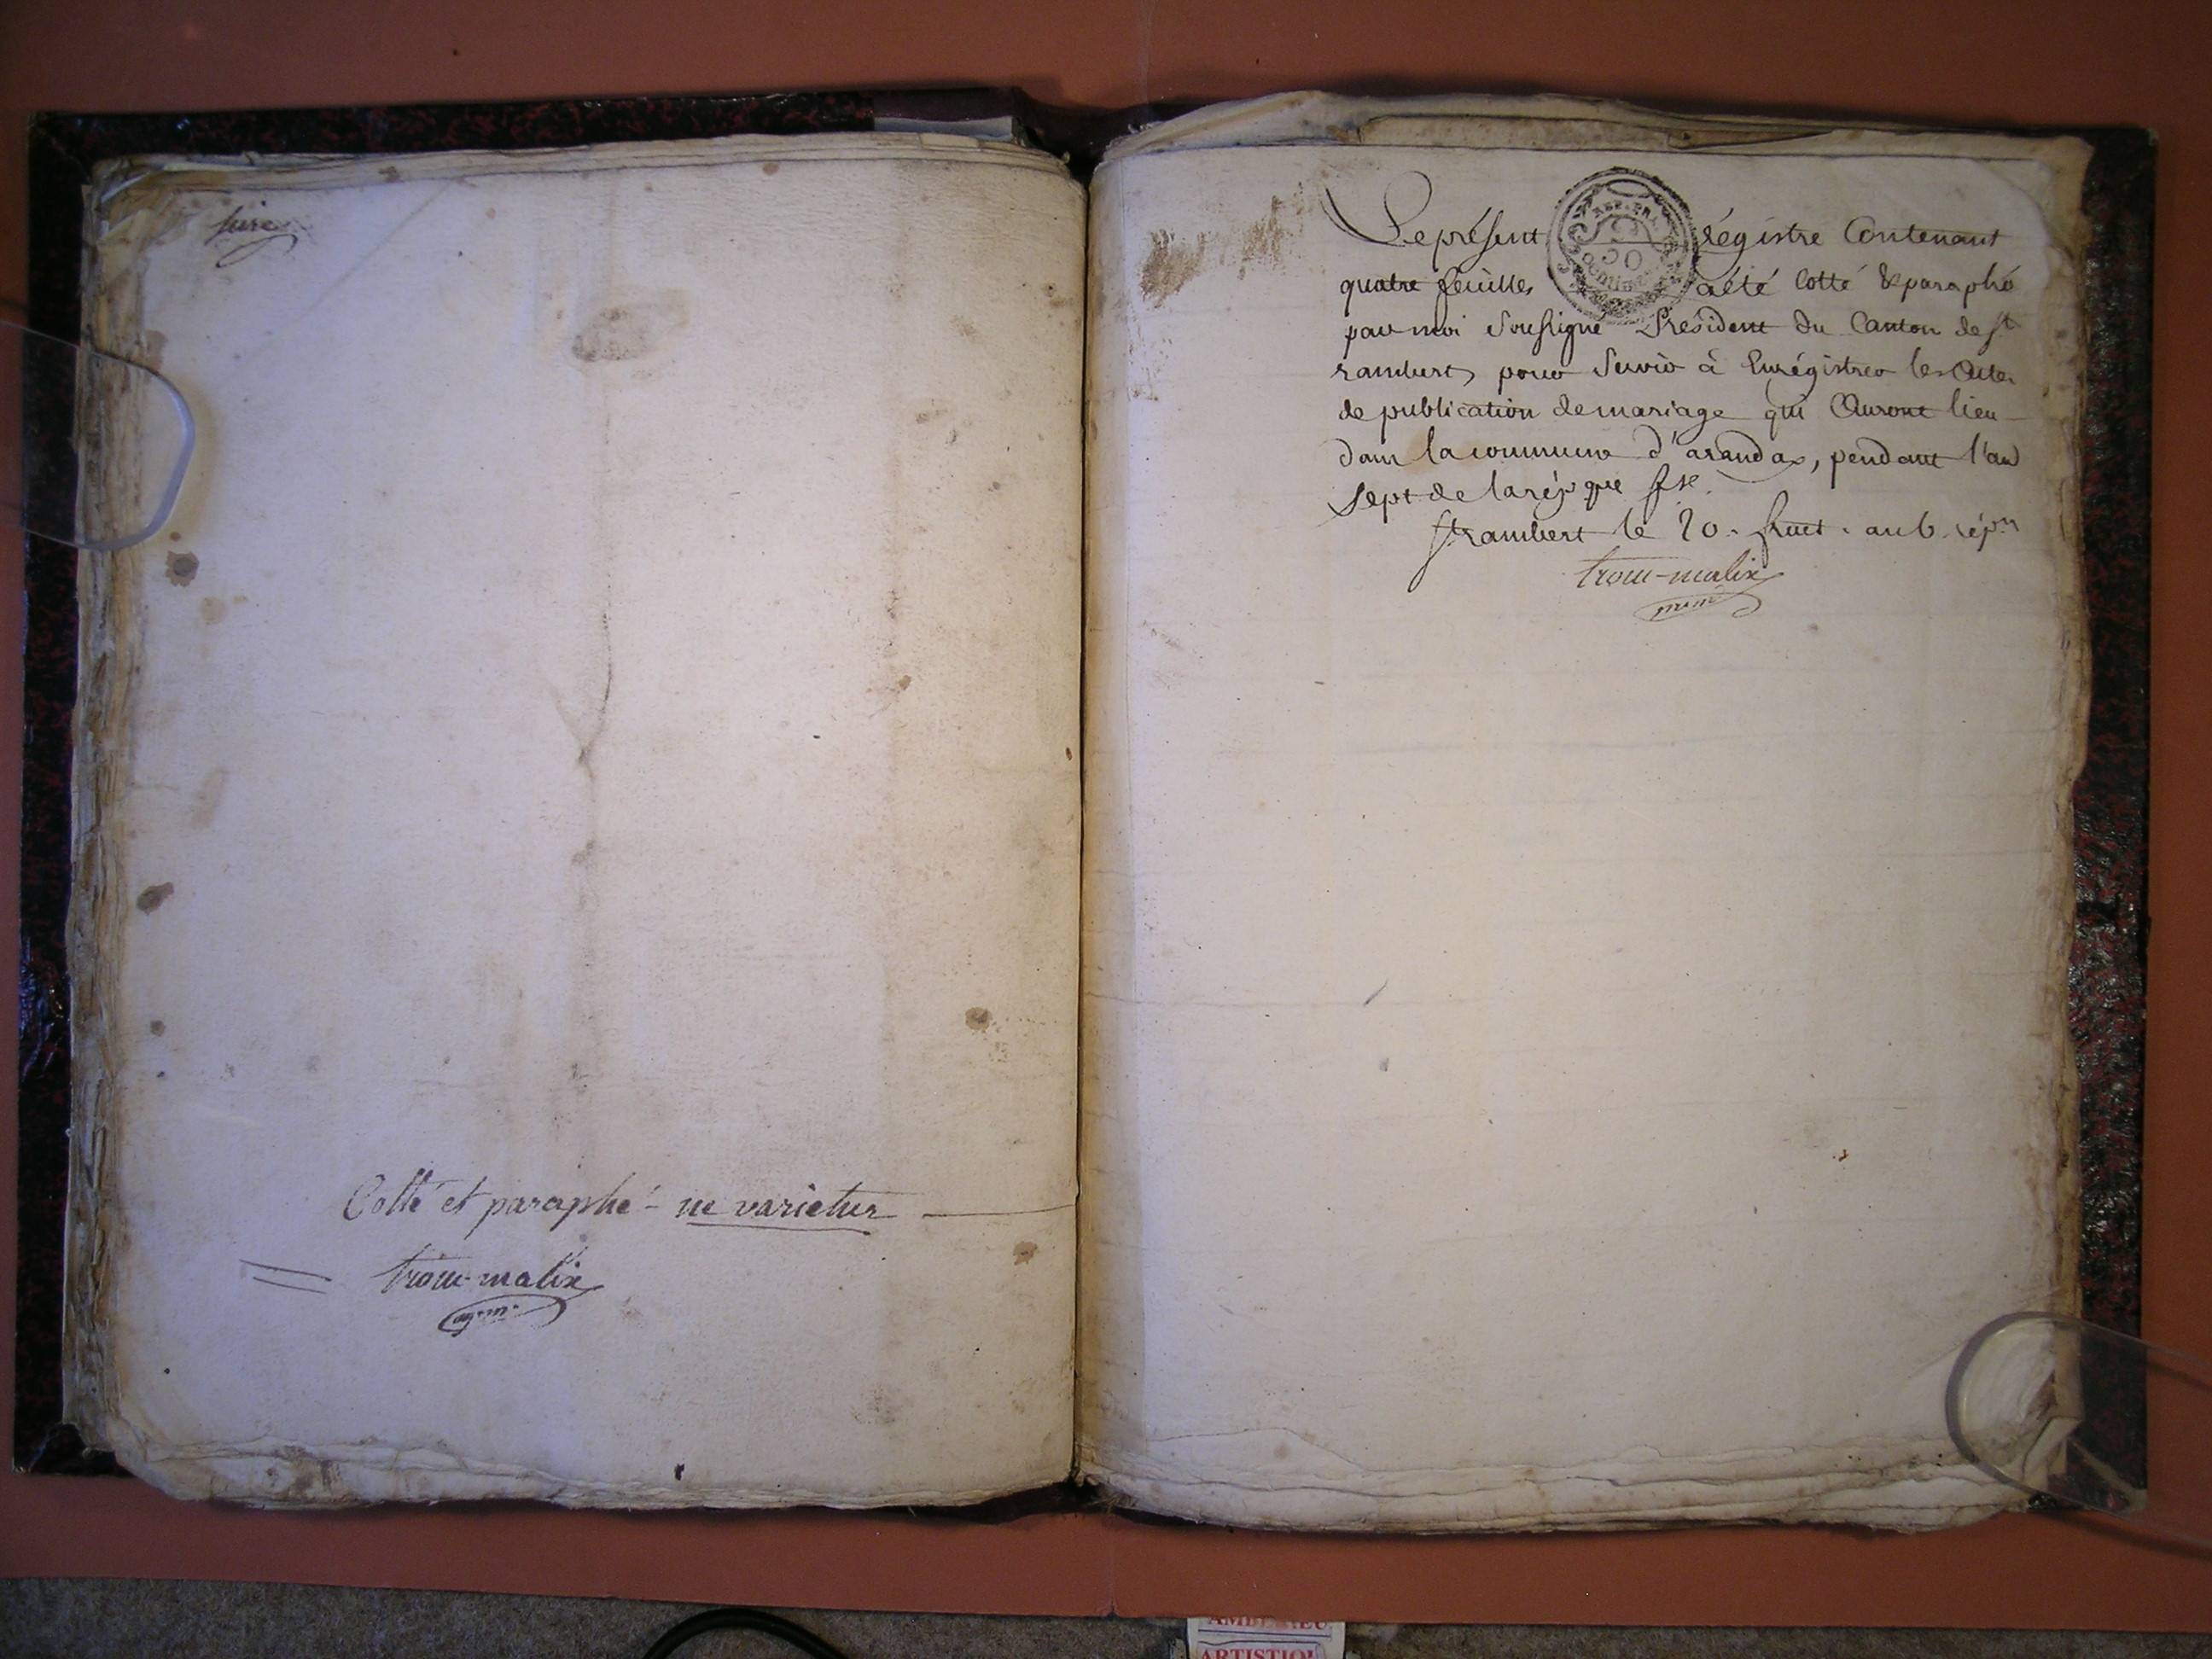 Cotté et paraphé - ne varietur
trocu-matix
Le présent régistre Contenant
quatre feuilles a été cotté & paraphé
par moi Soussigné Président du Canton de st
rambert, pour Servir à Enrégistrer les Actes
de publication de mariage qui Auront lieu
dans la commune d'arandas, pendant l'an
sept de la rép que fse.
st rambert le 20. fruct. an 6. répn
trocu-matix
REP. FRA.
50
AMBERIEU